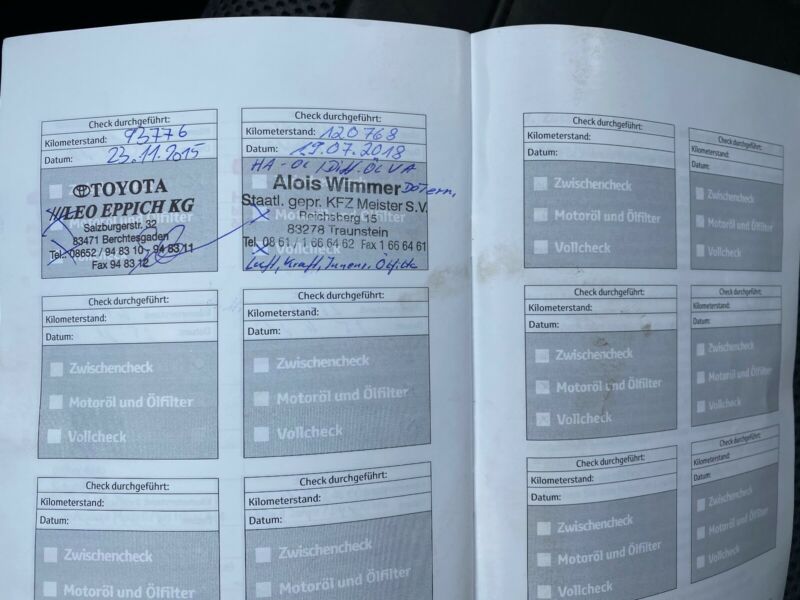 Check durchgeführt:
Kilometerstand: 93776
Datum: 23.11.2015
TOYOTA
LEO EPPICH KG
Salzburgerstr. 32
83471 Berchtesgaden
Tel.: 08652 / 94 83 10 - 94 83 11
Fax 94 83 12
Check durchgeführt:
Kilometerstand: 120768
Datum: 19.07.2018
HA-Öl / Diff.Öl VA
Alois Wimmer
Staatl. gepr. KFZ Meister S.V.
Reichsberg 15
83278 Traunstein
Tel. 08 61 / 1 66 64 62 Fax 1 66 64 61
Vollcheck
Luft, Kraft, Innenr. Ölfilter
Check durchgeführt:
Kilometerstand:
Datum:
Zwischencheck
Motoröl und Ölfilter
Vollcheck
Check durchgeführt:
Kilometerstand:
Datum:
Zwischencheck
Motoröl und Ölfilter
Vollcheck
Check durchgeführt:
Kilometerstand:
Datum:
Zwischencheck
Motoröl und Ölfilter
Vollcheck
Check durchgeführt:
Kilometerstand:
Datum:
Zwischencheck
Motoröl und Ölfilter
Vollcheck
Check durchgeführt:
Kilometerstand:
Datum:
Zwischencheck
Motoröl und Ölfilter
Check durchgeführt:
Kilometerstand:
Datum:
Zwischencheck
Motoröl und Ölfilter
Check durchgeführt:
Kilometerstand:
Datum:
Zwischencheck
Motoröl und Ölfilter
Vollcheck
Check durchgeführt:
Kilometerstand:
Datum:
Zwischencheck
Motoröl und Ölfilter
Vollcheck
Check durchgeführt:
Kilometerstand:
Datum:
Zwischencheck
Motoröl und Ölfilter
Vollcheck
Check durchgeführt:
Kilometerstand:
Datum:
Zwischencheck
Motoröl und Ölfilter
Vollcheck